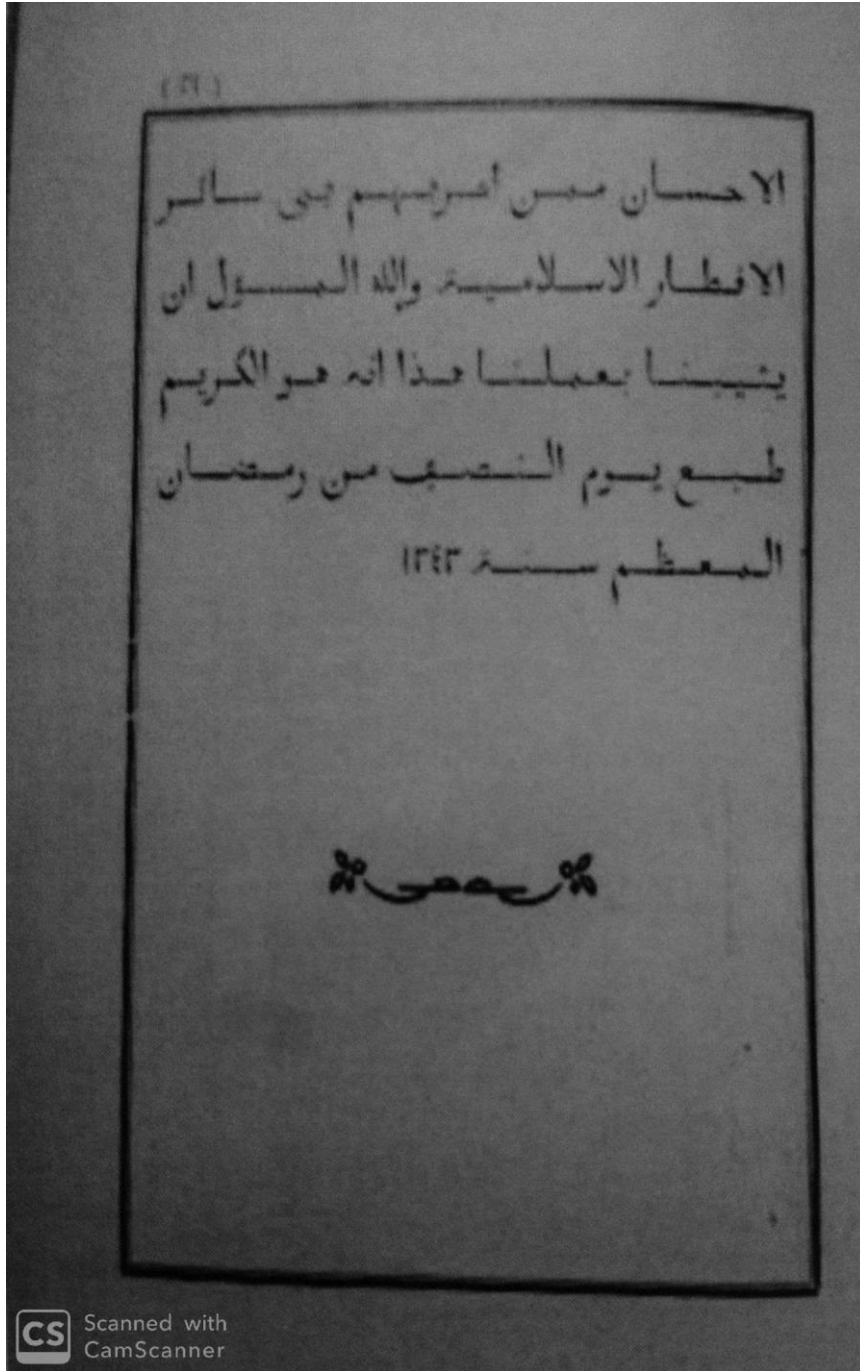 الاحسان ممن بهم بى سائر
الاقطار الاسلامية والله المسؤول ان
يثيبنا بعملنا هذا انه هو الكريم
طبع يوم النصف من رمضان
المعظم سنة ١٣٤٣
CS Scanned with
CamScanner